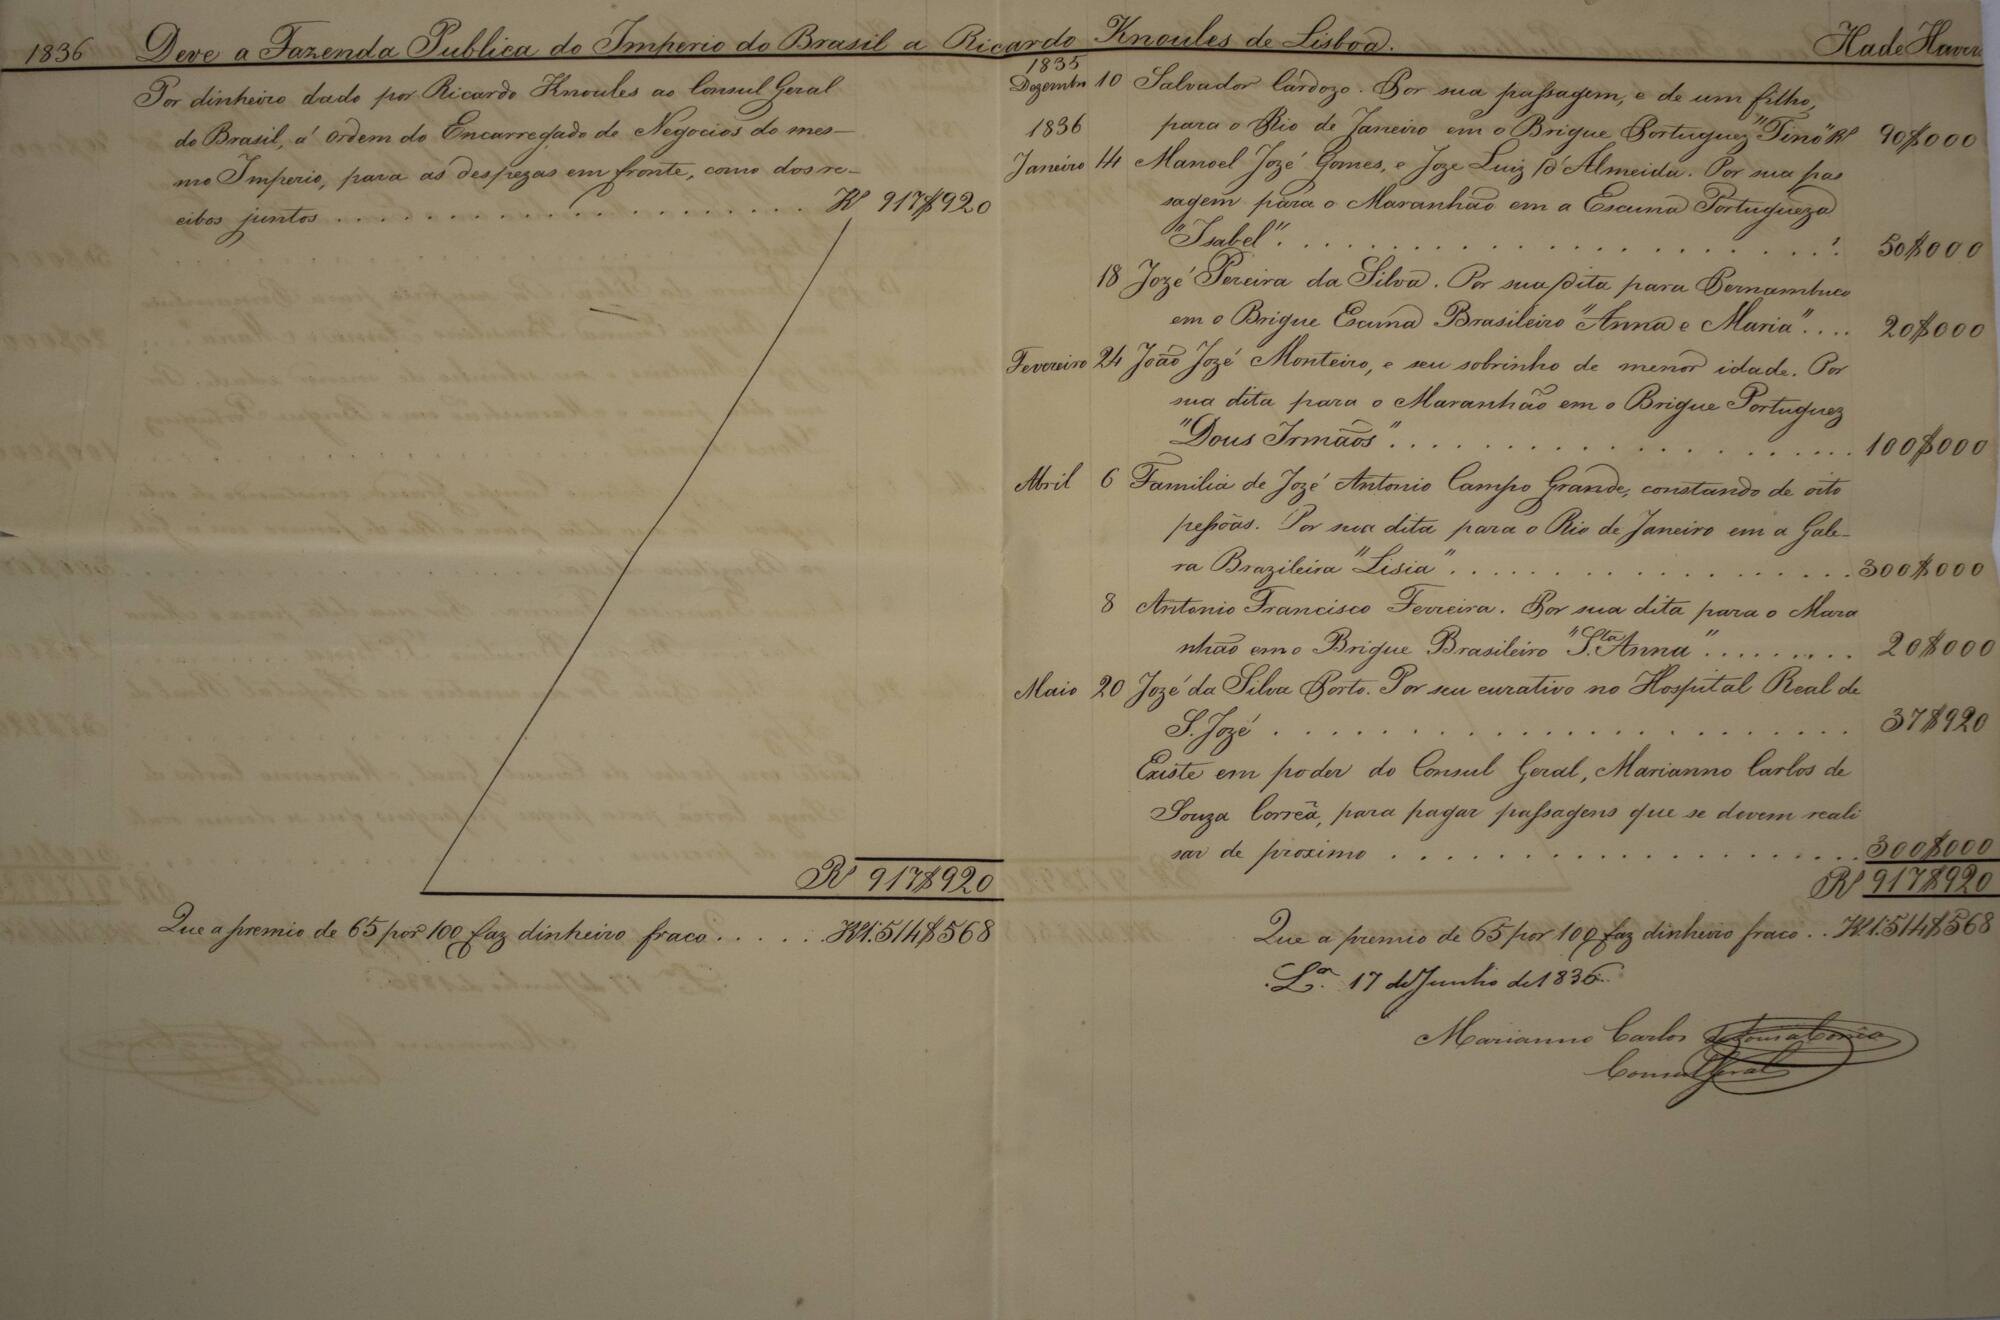 1836 Deve a Fazenda Publica do Imperio do Brasil a Ricardo Knoules de Lisboa. Hade Haver
Por dinheiro dado por Ricardo Knoules ao Consul Geral
do Brasil, á ordem do Encarregado de Negocios do mes-
mo Imperio, para as despezas em fronte, como dos re-
cibos juntos . . . . . . . . . . . . . . . . . . . Rs 917$920
Rs 917$920
Que a premio de 65 por 100 faz dinheiro fraco . . . . . . Rs 1:514$568
1835
Dezembro 10 Salvador Cardozo. Por sua passagem, e de um filho,
1836 para o Rio de Janeiro em o Brigue Portuguez "Tino" Rs 90$000
Janeiro 14 Manoel Jozé Gomes, e Joze Luiz d'Almeida. Por sua pas
sagem para o Maranhão em a Escuna Portugueza
"Isabel" . . . . . . . . . . . . . . . . . . . . 50$000
18 Jozé Pereira da Silva. Por sua dita para Pernambuco
em o Brigue Escuna Brasileiro "Anna e Maria" . . . . 20$000
Fevereiro 24 João Jozé Monteiro, e seu sobrinho de menor idade. Por
sua dita para o Maranhão em o Brigue Portuguez
"Dous Irmãos" . . . . . . . . . . . . . . . . . . . 100$000
Abril 6 Familia de Jozé Antonio Campo Grande, constando de oito
pessoas. Por sua dita para o Rio de Janeiro em a Gale-
ra Brazileira "Lisia" . . . . . . . . . . . . . . . . . . 300$000
8 Antonio Francisco Ferreira. Por sua dita para o Mara
nhão em o Brigue Brasileiro "Sta. Anna" . . . . . . . . . 20$000
Maio 20 Jozé da Silva Porto. Por seu curativo no Hospital Real de
S. Jozé . . . . . . . . . . . . . . . . . . . . . . 37$920
Existe em poder do Consul Geral, Marianno Carlos de
Souza Corrêa, para pagar passagens que se devem reali
sar de proximo . . . . . . . . . . . . . . . . . . . . 300$000
Rs 917$920
Que a premio de 65 por 100 faz dinheiro fraco . . Rs 1:514$568
Lxa. 17 de Junho de 1836.
Marianno Carlos de Souza Corrêa
Consul Geral